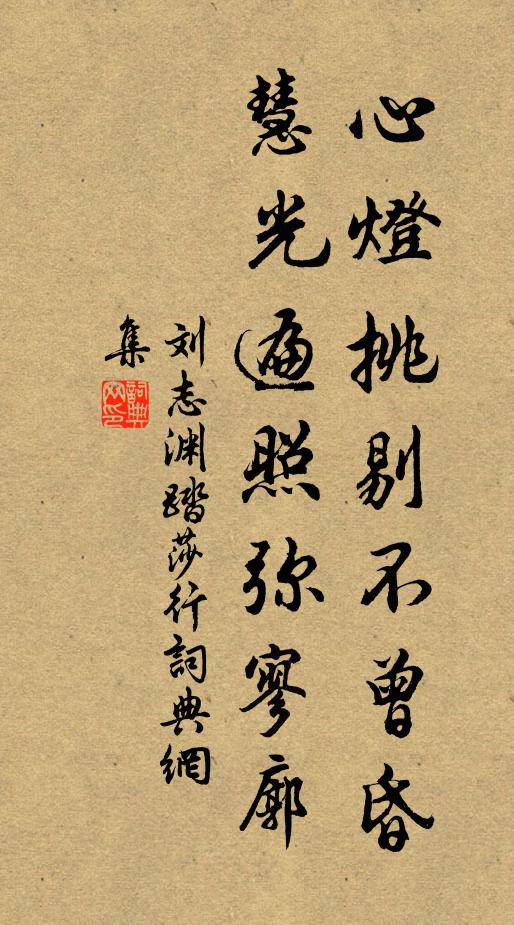 心燈挑剔不曾昏
慧光遍照弥寥廓
刘志渊踏莎行詞典網
集
詞典网印